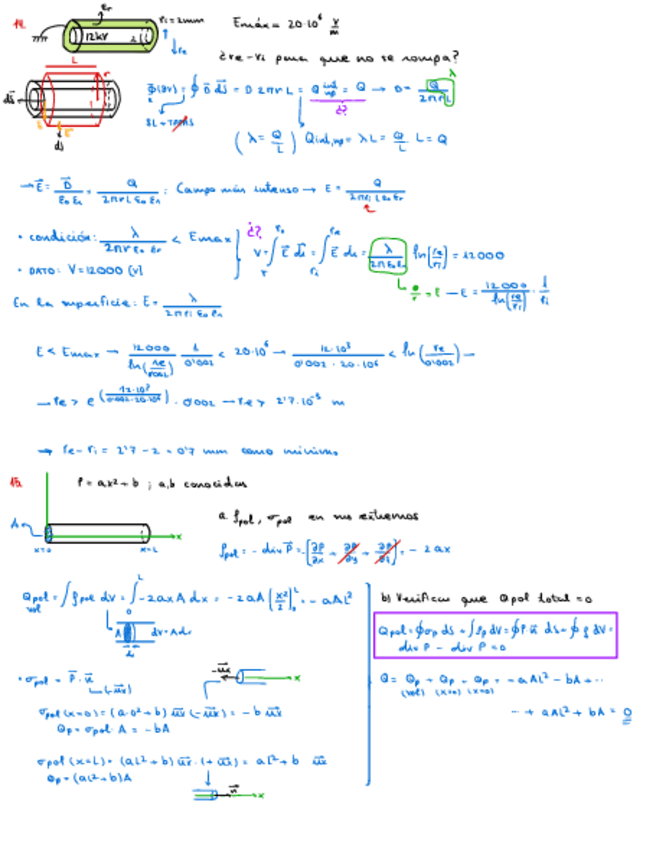 14.
εr
ri = 2mm
12kV
re
Emáx = 20·10⁶ V/m
¿re - ri para que no se rompa?
L
r
ds
Φ(SV) = ∮ D ds = D 2πr L = Q ind np = Q → D = Q/2πrL
λ
¿?
SL + TAPAS
(λ = Q/L) Qind,np = λL = Q/L L = Q
→ E = D/ε0 εr = Q/2πrL ε0 εr ; Campo más intenso → E = Q/2πri L ε0 εr
• condición: λ/2πr ε0 εr < Emax
¿?
V = ∫ E dl = ∫ E dr = λ/2π ε0 εr ln(re/ri) = 12000
• DATO: V = 12000 (V)
E = 12000/ln(re/ri) · 1/ri
En la superficie: E = λ/2πri ε0 εr
E < Emax → 12000/ln(re/0'002) 1/0'002 < 20·10⁶ → 12·10³/0'002·20·10⁶ < ln(re/0'002) →
→ re > e^(12·10³/0'002·20·10⁶) · 0'002 → re > 2'7·10⁻³ m
→ re - ri = 2'7 - 2 = 0'7 mm como mínimo
15.
P = ax² + b ; a,b conocidas
A
x=0
x=L
x
a. ρpol, σpol en sus extremos
ρpol = - div P = -[∂P/∂x + ∂P/∂y + ∂P/∂z] = - 2ax
Qpol vol = ∫ρpol dV = ∫ -2ax A dx = -2aA [x²/2] = - aAL²
A
dV = A dx
dx
b) Verificar que Qpol total = 0
Qpol = ∮σp dS + ∫ρp dV = ∮P·u dS + ∮ρ dV =
div P - div P = 0
• σpol = P · u
(-ux)
-ux
x
σpol (x=0) = (a·0² + b) ux (-ux) = - b ux
Qp = σpol · A = - bA
Q = Qp + Qp + Qp = -aAL² - bA + ...
(vol) (x=0) (x=0)
... + aAL² + bA = 0
σpol (x=L) = (aL² + b) ux · (+ux) = aL² + b ux
Qp = (aL² + b)A
u
x